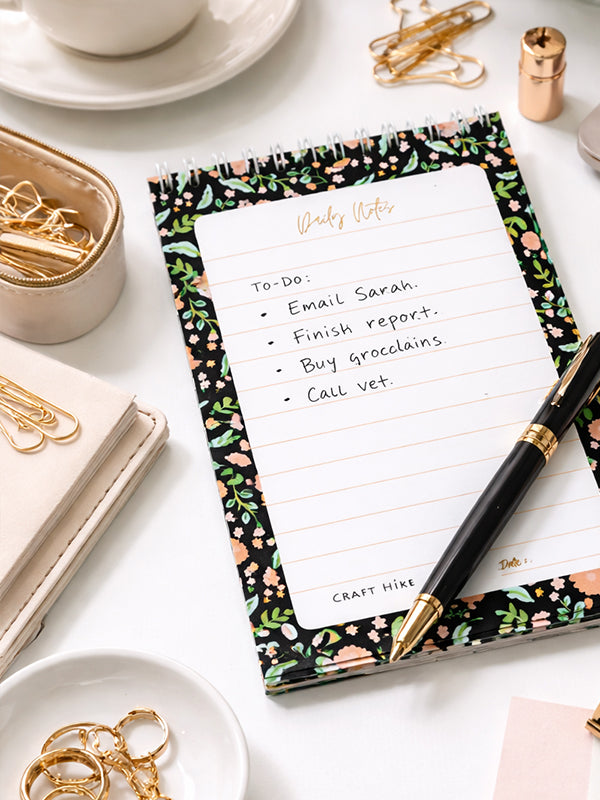 Daily Notes
To-Do:
• Email Sarah.
• Finish report.
• Buy grocclains.
• Call vet.
Date:
CRAFT HIKE